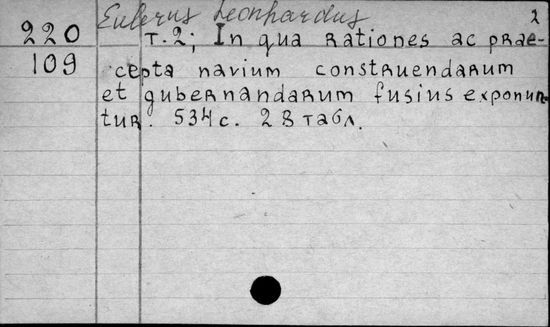 Eulerus Leonhardus 2
220 т.2; In qua rationes ac prae-
109 cepta navium construendarum
et gubernandarum fusius exponun-
tur. 534 с. 28 табл.